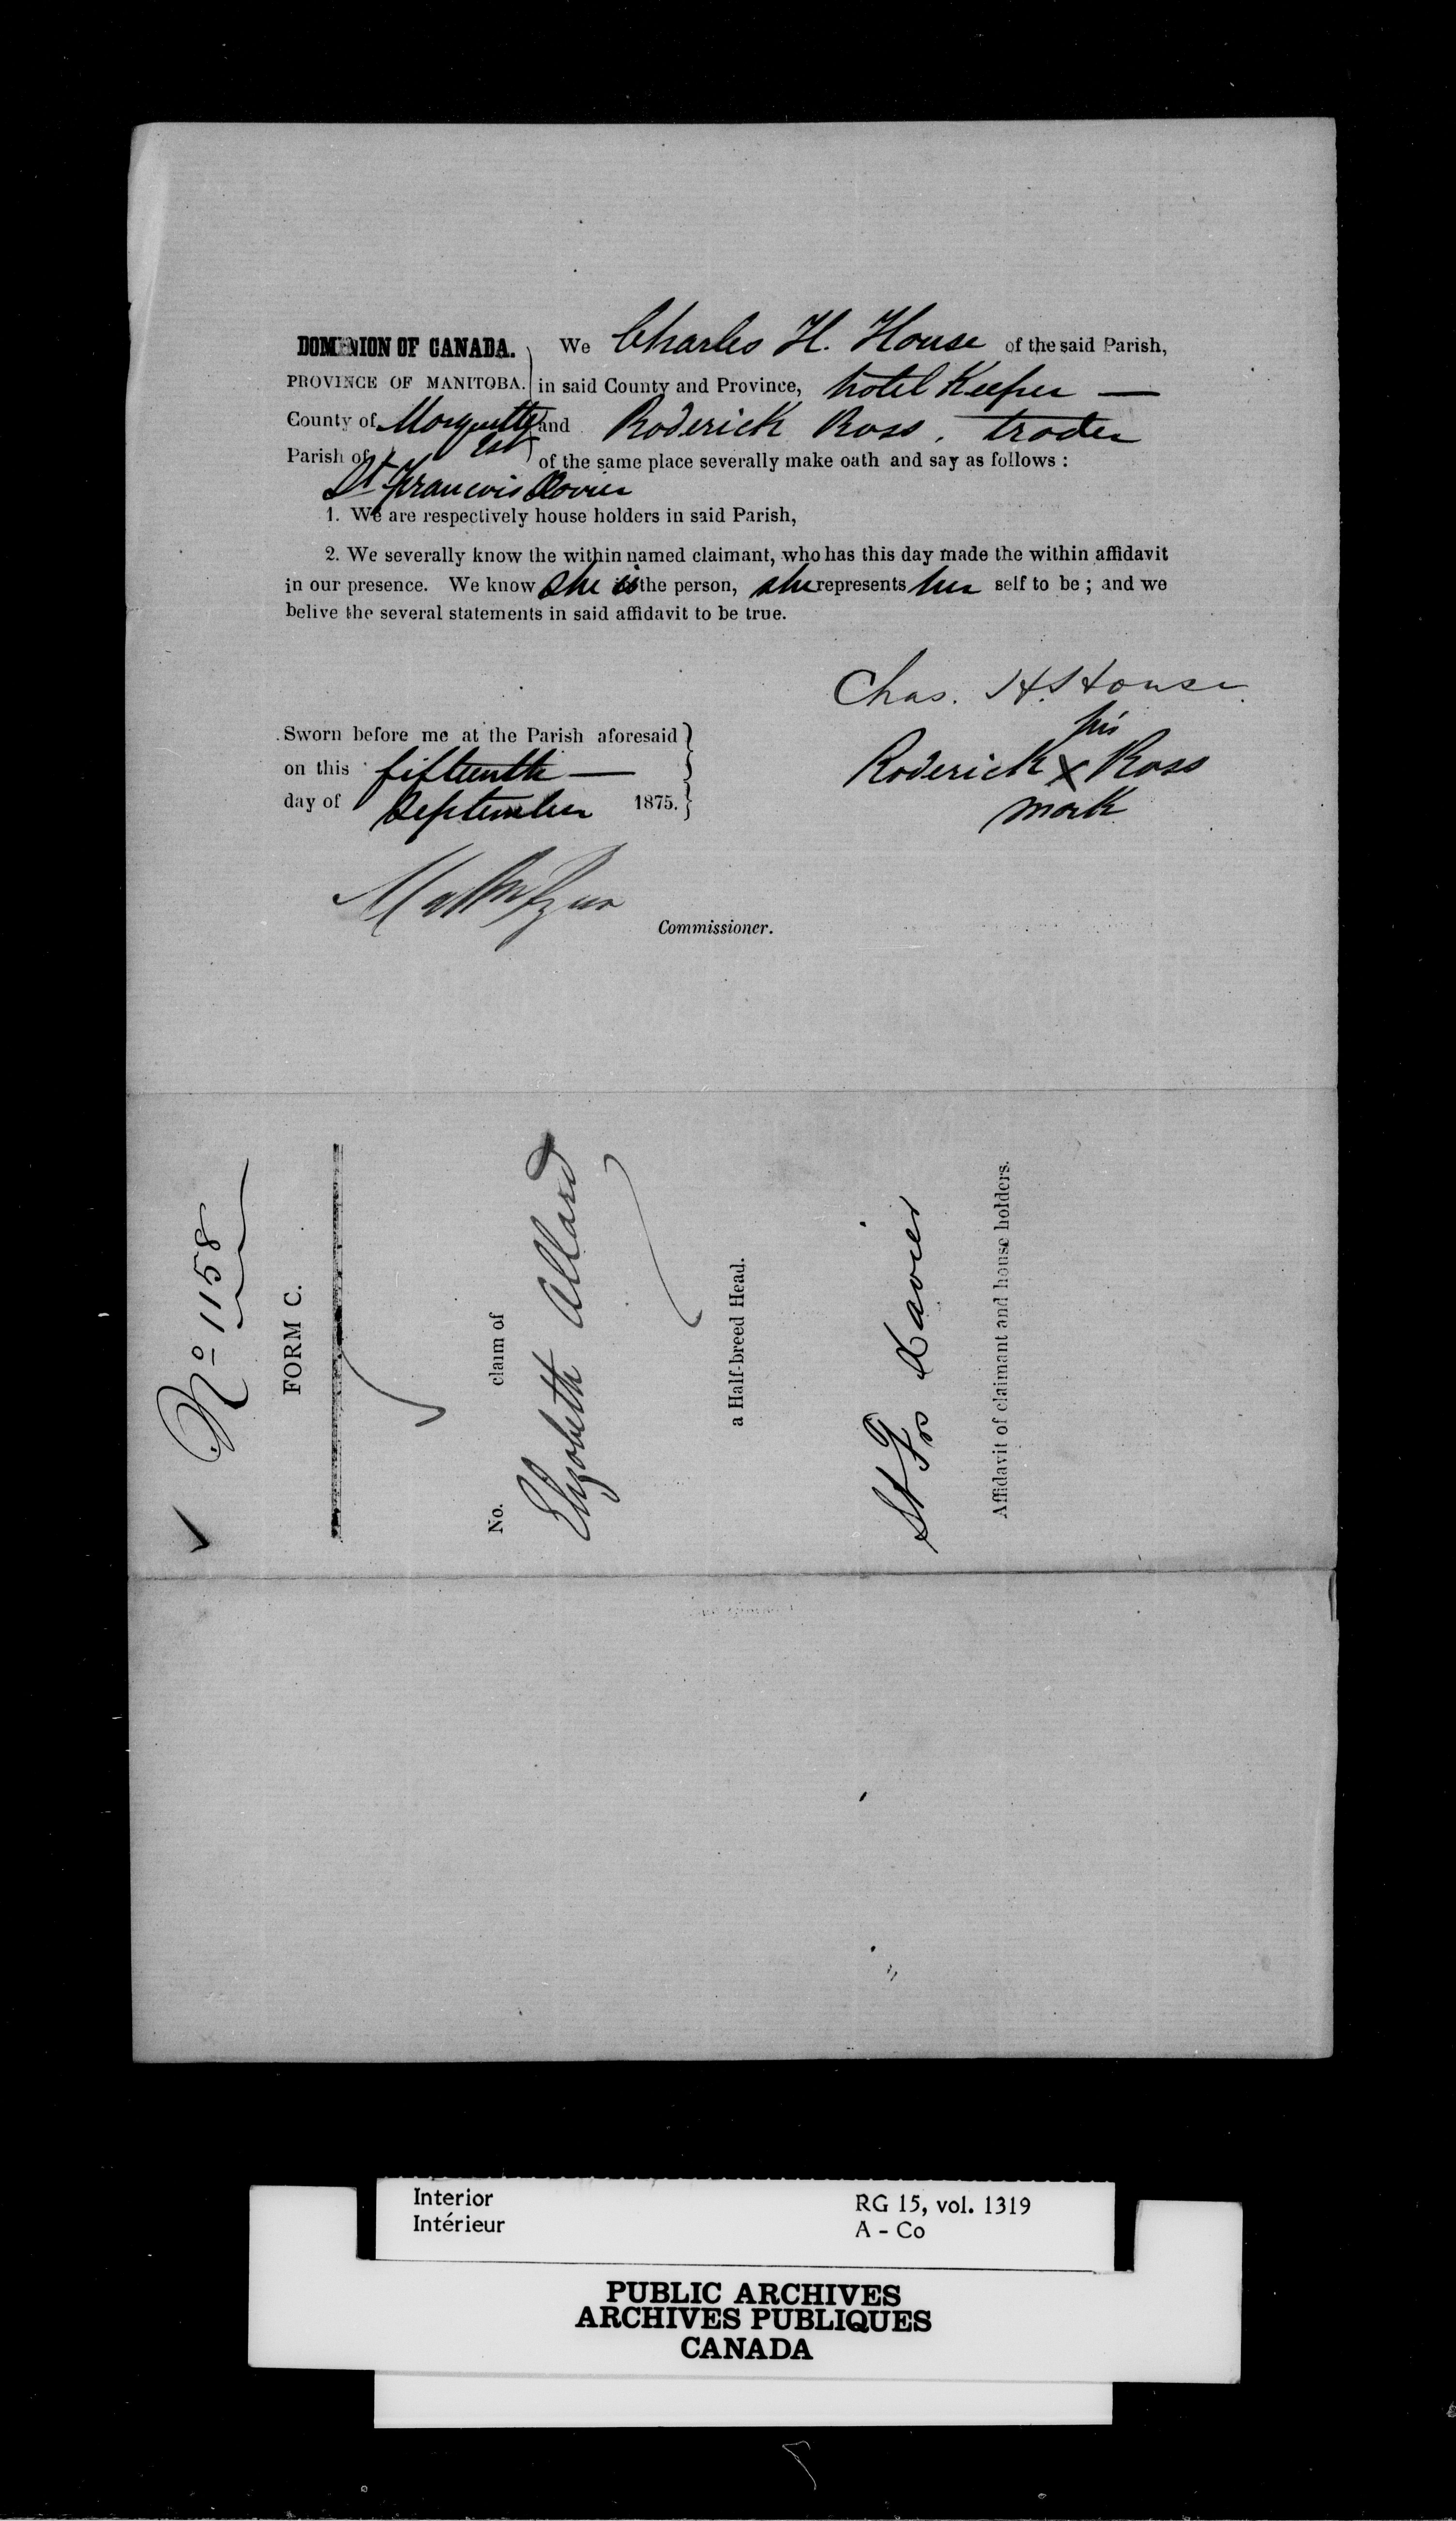 DOMINION OF CANADA. We Charles H. House of the said Parish,
PROVINCE OF MANITOBA. in said County and Province, hotel Keeper —
County of Marquette Est and Roderick Ross, trader
Parish of of the same place severally make oath and say as follows :
St Francois Xavier
1. We are respectively house holders in said Parish,
2. We severally know the within named claimant, who has this day made the within affidavit
in our presence. We know she is the person, she represents her self to be ; and we
belive the several statements in said affidavit to be true.
Chas. H. House
his
Sworn before me at the Parish aforesaid
on this fifteenth —
Roderick X Ross
day of September 1875.
mark
Commissioner.
No 1158
FORM C.
No. claim of
Elizabeth Allard
a Half-breed Head.
St Frs Xavier
Affidavit of claimant and house holders.
Interior
Intérieur
RG 15, vol. 1319
A - Co
PUBLIC ARCHIVES
ARCHIVES PUBLIQUES
CANADA